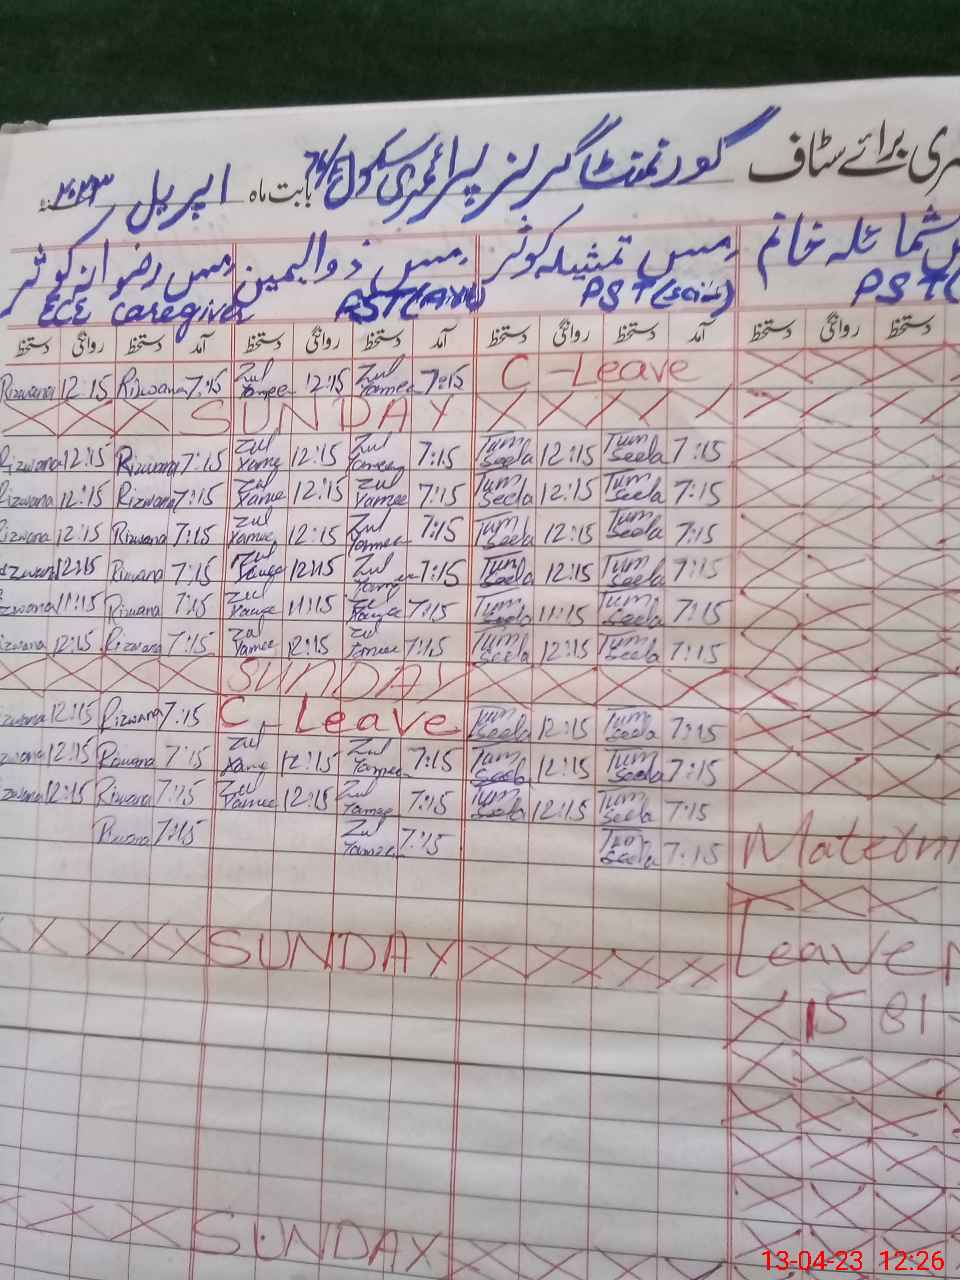 ری برائے سٹاف گورنمنٹ گرلز پرائمری سکول بابت ماہ اپریل ۲۰۲۳
شمائلہ خانم مس تمثیلہ کوثر مس ذوالیمین مس رضوانہ کوثر
PST PST ECE Caregiver
دستخط روانگی دستخط آمد دستخط روانگی دستخط آمد دستخط روانگی دستخط آمد دستخط روانگی دستخط
Rizwana 12:15 Rizwana 7:15 Zul Yamee 12:15 Zul Yamee 7:15 C-Leave
SUNDAY
Rizwana 12:15 Rizwana 7:15 Zul Yamee 12:15 Zul Yameen 7:15 Tum Seela 12:15 Tum Seela 7:15
Rizwana 12:15 Rizwana 7:15 Zul Yamee 12:15 Zul Yamee 7:15 Tum Seela 12:15 Tum Seela 7:15
Rizwana 12:15 Rizwana 7:15 Zul Yamee 12:15 Zul Yamee 7:15 Tum Seela 12:15 Tum Seela 7:15
12:15 Rizwana 7:15 Zul 12:15 Zul 7:15 Tum Seela 12:15 Tum Seela 7:15
zwana 11:15 Rizwana 7:15 Zul Yamee 11:15 Zul Yamee 7:15 Tum Seela 11:15 Tum Seela 7:15
izwana 12:15 Rizwana 7:15 Zul Yamee 12:15 Zul Yamee 7:15 Tum Seela 12:15 Tum Seela 7:15
SUNDAY
zwana 12:15 Rizwana 7:15 C-Leave Tum Seela 12:15 Tum Seela 7:15
zwana 12:15 Rizwana 7:15 Zul Yame 12:15 Zul Yamee 7:15 Tum Seela 12:15 Tum Seela 7:15
zwana 12:15 Rizwana 7:15 Zul Yamee 12:15 Zul Yamee 7:15 Tum Seela 12:15 Tum Seela 7:15
Rizwana 7:15 Zul Yamee 7:15 Tum Seela 7:15 Materni
SUNDAY Leave
1581
SUNDAY
13-04-23 12:26